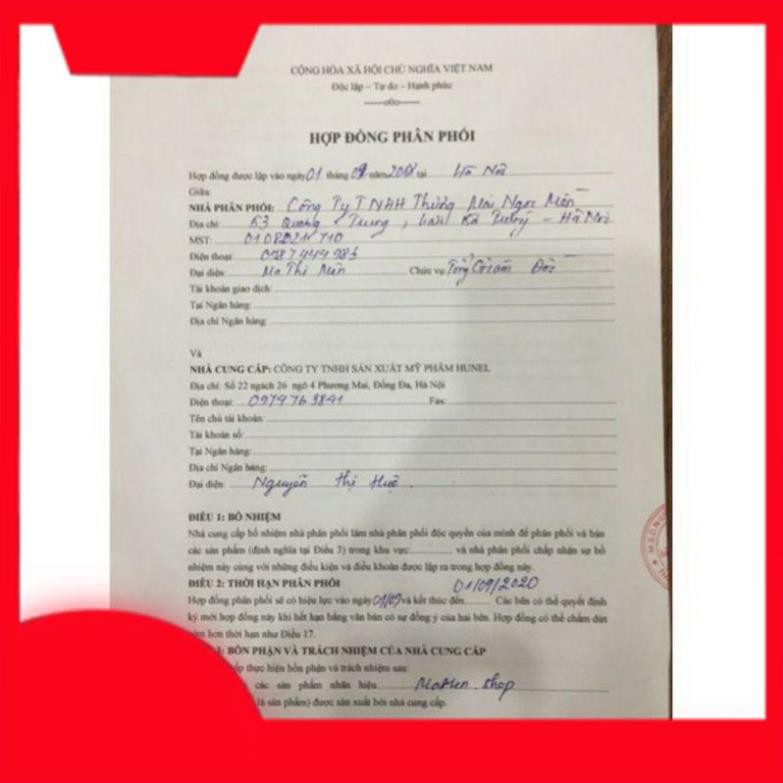 CỘNG HÒA XÃ HỘI CHỦ NGHĨA VIỆT NAM
Độc lập – Tự do – Hạnh phúc
-----o0o-----
HỢP ĐỒNG PHÂN PHỐI
Hợp đồng được lập vào ngày 01 tháng 09 năm 2018 tại Hà Nội
Giữa:
NHÀ PHÂN PHỐI: Công Ty TNHH Thương Mại Ngọc Mến
Địa chỉ: 53 Quang Trung, Hai Bà Trưng - Hà Nội
MST:
Điện thoại:
Đại diện: Ma Thị Mến Chức vụ: Tổng Giám Đốc
Tài khoản giao dịch:
Tại Ngân hàng:
Địa chỉ Ngân hàng:
Và
NHÀ CUNG CẤP: CÔNG TY TNHH SẢN XUẤT MỸ PHẨM HUNEL
Địa chỉ: Số 22 ngách 26 ngõ 4 Phương Mai, Đống Đa, Hà Nội
Điện thoại: 0979763841 Fax:
Tên chủ tài khoản:
Tài khoản số:
Tại Ngân hàng:
Địa chỉ Ngân hàng:
Đại diện: Nguyễn Thị Huệ.
ĐIỀU 1: BỔ NHIỆM
Nhà cung cấp bổ nhiệm nhà phân phối làm nhà phân phối độc quyền của mình để phân phối và bán
các sản phẩm (định nghĩa tại Điều 3) trong khu vực:............ và nhà phân phối chấp nhận sự bổ
nhiệm này cùng với những điều kiện và điều khoản được lập ra trong hợp đồng này.
ĐIỀU 2: THỜI HẠN PHÂN PHỐI 01/09/2020
Hợp đồng phân phối sẽ có hiệu lực vào ngày 01/09 và kết thúc đến........ Các bên có thể quyết định
ký mới hợp đồng này khi hết hạn bằng văn bản có sự đồng ý của hai bên. Hợp đồng có thể chấm dứt
hơn thời hạn như Điều 17.
BỔN PHẬN VÀ TRÁCH NHIỆM CỦA NHÀ CUNG CẤP
thực hiện bổn phận và trách nhiệm sau:
các sản phẩm nhãn hiệu shop
là sản phẩm) được sản xuất bởi nhà cung cấp.